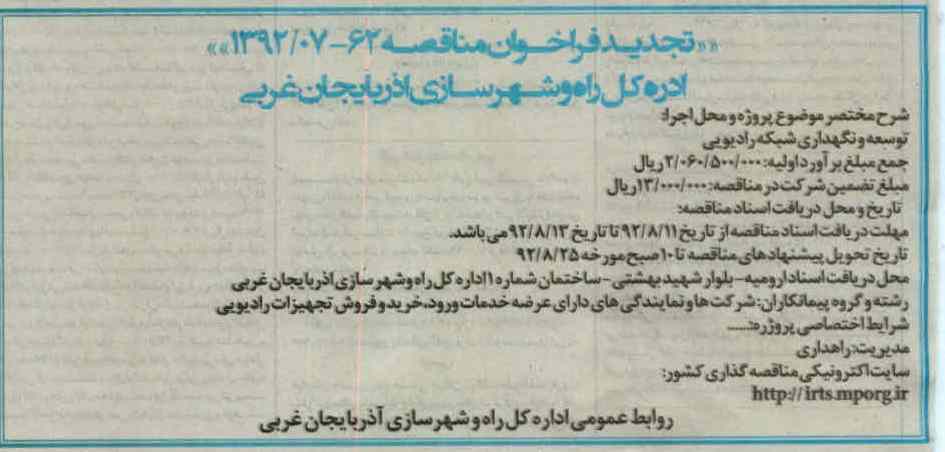 ««تجدید فراخوان مناقصه ۶۲-۱۳۹۲/۰۷»»
ادره کل راه و شهرسازی آذربایجان غربی
شرح مختصر موضوع پروژه و محل اجرا:
توسعه و نگهداری شبکه رادیویی
جمع مبلغ برآورد اولیه: ۲/۰۶۰/۵۰۰/۰۰۰ ریال
مبلغ تضمین شرکت در مناقصه: ۱۳/۰۰۰/۰۰۰ ریال
تاریخ و محل دریافت اسناد مناقصه:
مهلت دریافت اسناد مناقصه از تاریخ ۹۲/۸/۱۱ تا تاریخ ۹۲/۸/۱۳ می باشد.
تاریخ تحویل پیشنهادهای مناقصه تا ۱۰ صبح مورخه ۹۲/۸/۲۵
محل دریافت اسناد ارومیه – بلوار شهید بهشتی – ساختمان شماره ۱ اداره کل راه و شهرسازی اذربایجان غربی
رشته و گروه پیمانکاران: شرکت ها و نمایندگی های دارای عرضه خدمات ورود، خرید و فروش تجهیزات رادیویی
شرایط اختصاصی پروژره:......
مدیریت: راهداری
سایت اکترونیکی مناقصه گذاری کشور:
http://irts.mporg.ir
روابط عمومی اداره کل راه و شهرسازی آذربایجان غربی